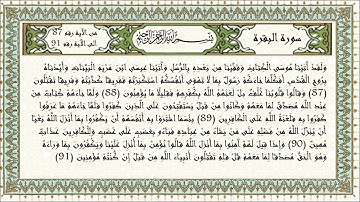 سورة البقرة
بسم الله الرحمن الرحيم
من الآية رقم 87
الى الآية رقم 91
وَلَقَدْ آتَيْنَا مُوسَى الْكِتَابَ وَقَفَّيْنَا مِنْ بَعْدِهِ بِالرُّسُلِ وَآتَيْنَا عِيسَى ابْنَ مَرْيَمَ الْبَيِّنَاتِ وَأَيَّدْنَاهُ
بِرُوحِ الْقُدُسِ أَفَكُلَّمَا جَاءَكُمْ رَسُولٌ بِمَا لَا تَهْوَى أَنْفُسُكُمُ اسْتَكْبَرْتُمْ فَفَرِيقًا كَذَّبْتُمْ وَفَرِيقًا تَقْتُلُونَ
(87) وَقَالُوا قُلُوبُنَا غُلْفٌ بَلْ لَعَنَهُمُ اللَّهُ بِكُفْرِهِمْ فَقَلِيلًا مَا يُؤْمِنُونَ (88) وَلَمَّا جَاءَهُمْ كِتَابٌ مِنْ
عِنْدِ اللَّهِ مُصَدِّقٌ لِمَا مَعَهُمْ وَكَانُوا مِنْ قَبْلُ يَسْتَفْتِحُونَ عَلَى الَّذِينَ كَفَرُوا فَلَمَّا جَاءَهُمْ مَا عَرَفُوا
كَفَرُوا بِهِ فَلَعْنَةُ اللَّهِ عَلَى الْكَافِرِينَ (89) بِئْسَمَا اشْتَرَوْا بِهِ أَنْفُسَهُمْ أَنْ يَكْفُرُوا بِمَا أَنْزَلَ اللَّهُ بَغْيًا
أَنْ يُنَزِّلَ اللَّهُ مِنْ فَضْلِهِ عَلَى مَنْ يَشَاءُ مِنْ عِبَادِهِ فَبَاءُوا بِغَضَبٍ عَلَى غَضَبٍ وَلِلْكَافِرِينَ عَذَابٌ
مُهِينٌ (90) وَإِذَا قِيلَ لَهُمْ آمِنُوا بِمَا أَنْزَلَ اللَّهُ قَالُوا نُؤْمِنُ بِمَا أُنْزِلَ عَلَيْنَا وَيَكْفُرُونَ بِمَا وَرَاءَهُ
وَهُوَ الْحَقُّ مُصَدِّقًا لِمَا مَعَهُمْ قُلْ فَلِمَ تَقْتُلُونَ أَنْبِيَاءَ اللَّهِ مِنْ قَبْلُ إِنْ كُنْتُمْ مُؤْمِنِينَ (91)